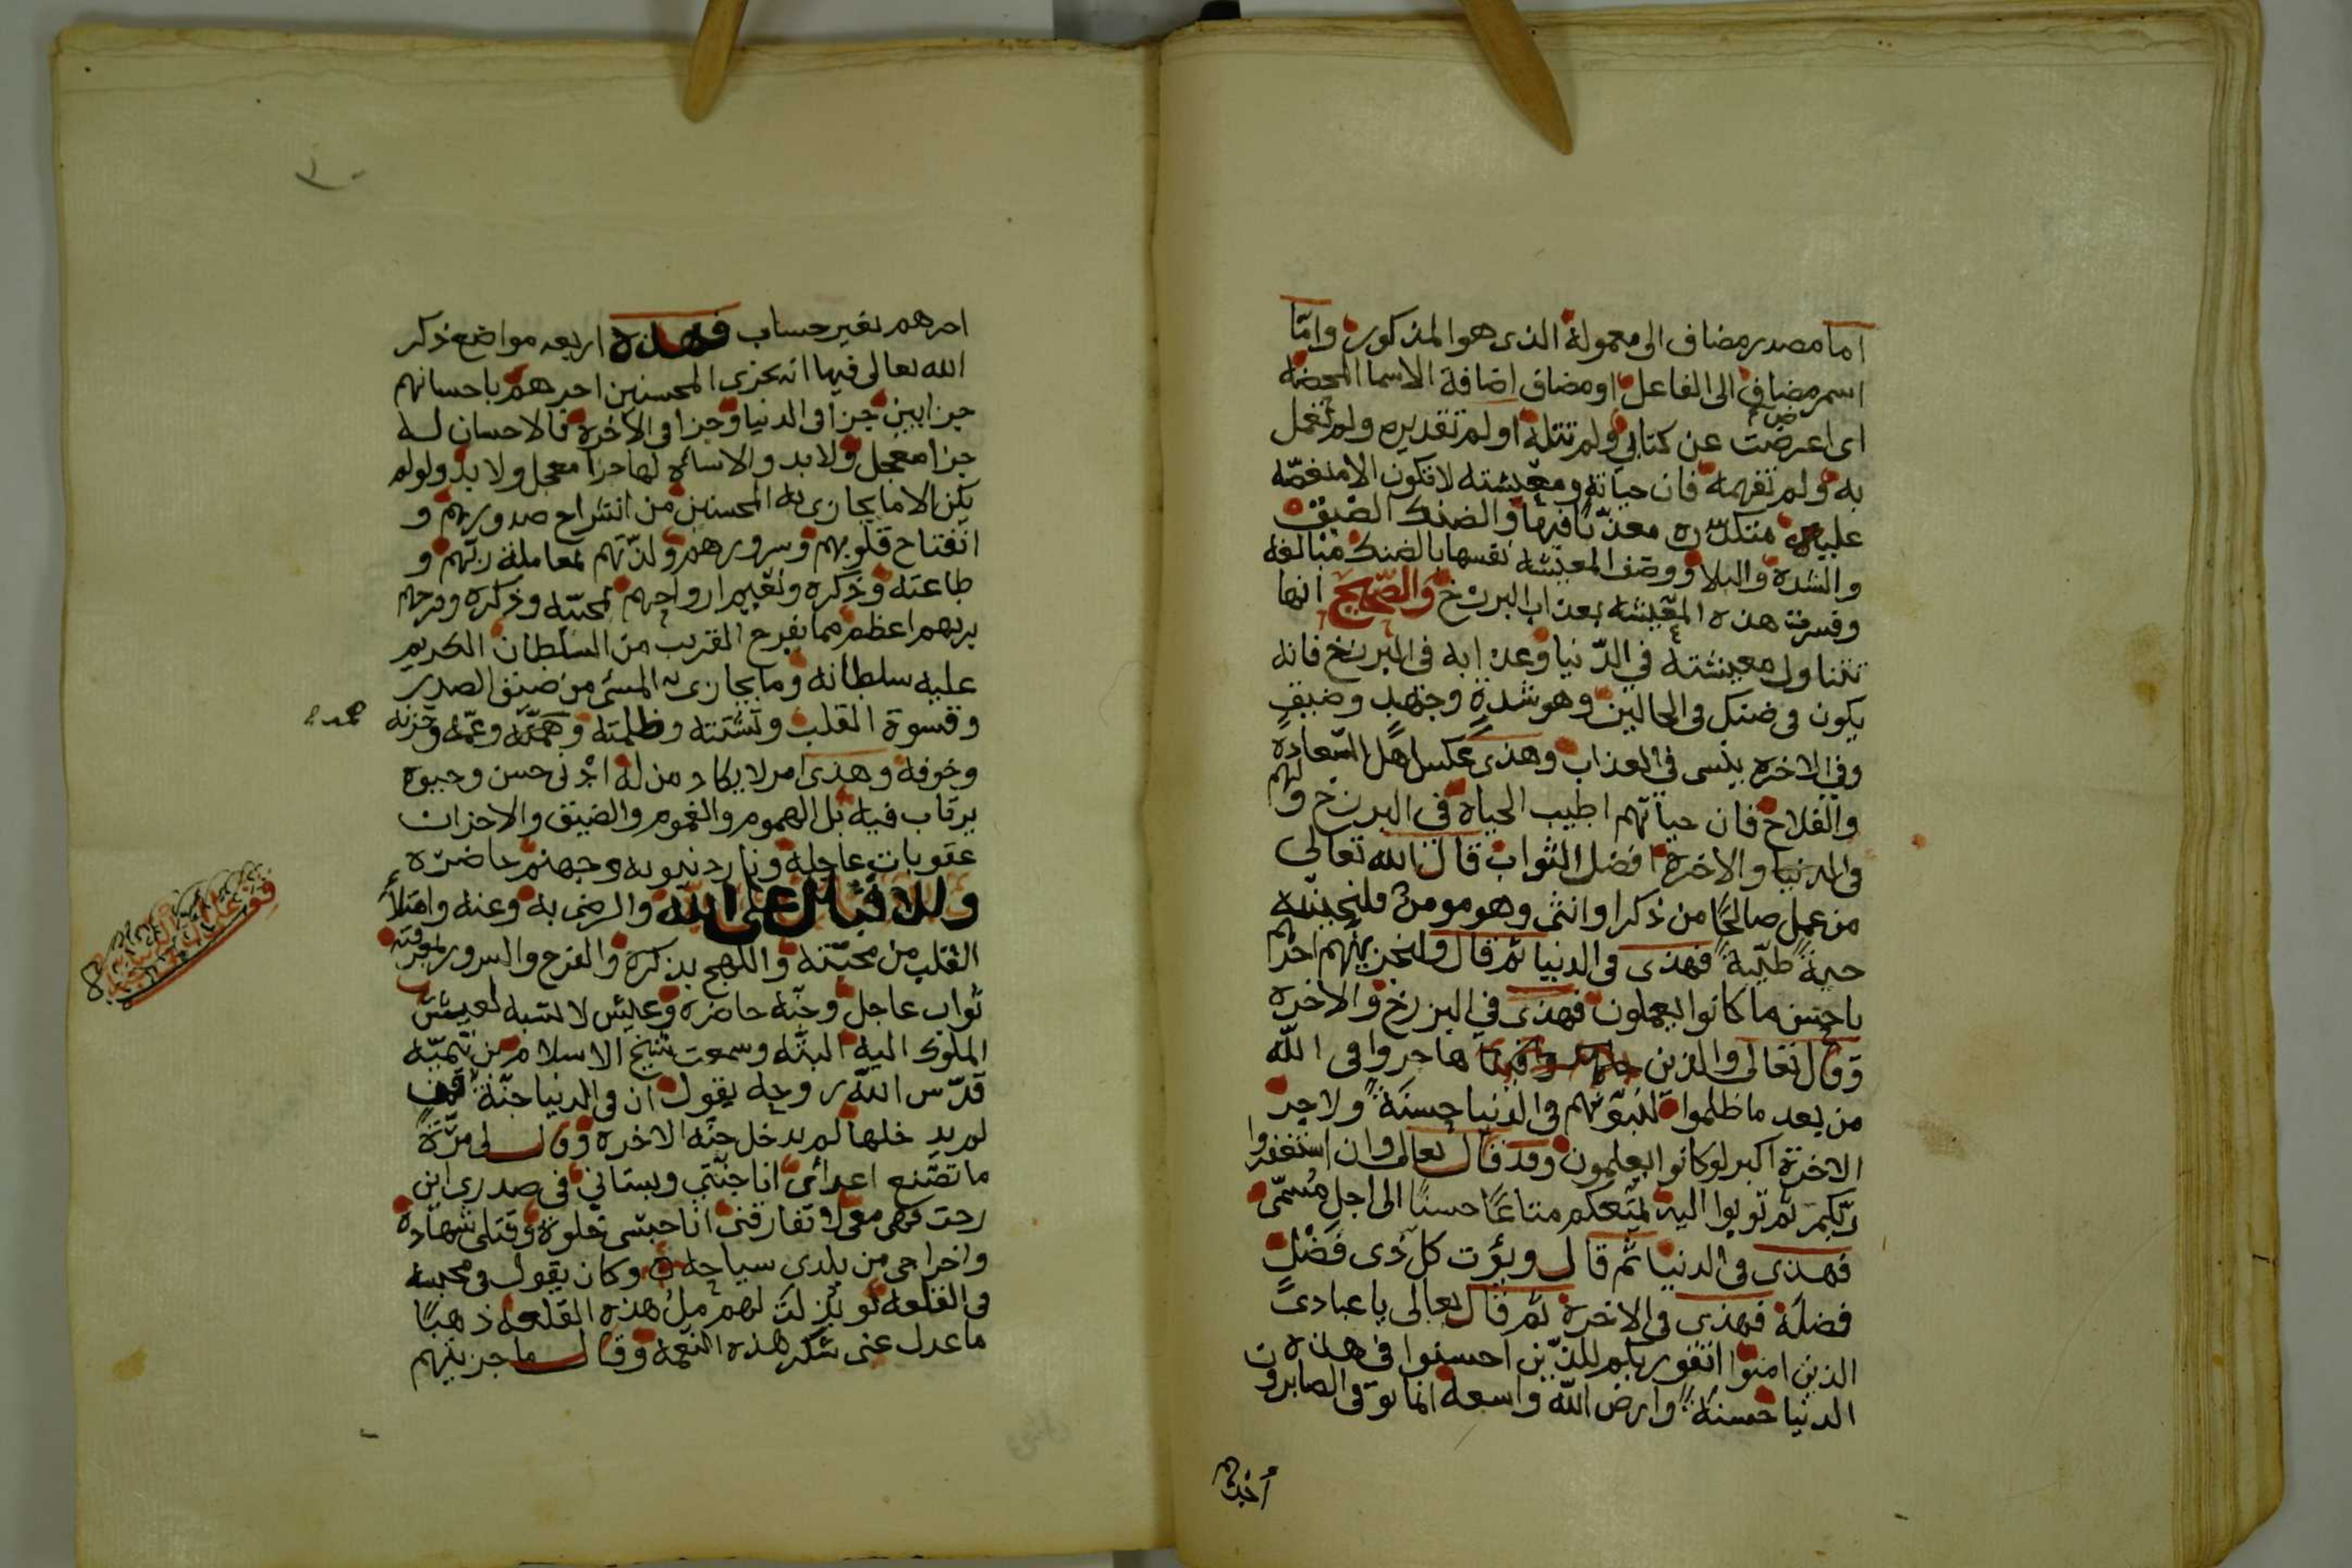 اما مصدر مضاف الى معموله الذى هو المذكور واما
اسم مضاف الى الفاعل او مضاف اضافة الاسما المحضه
اى اعرضت عن كتابي ولم تتله او لم تقديره ولم تعمل
به ولم تفهمه فان حياته ومعيشته لا تكون الا منغصّه
عليه متكدّره معذّبًا فيها والضنك الضيق
والشده والبلا ووصف المعيشه نفسها بالضنك مبالغه
وفسرت هذه المعيشه بعذاب البرزخ والصّحيح انها
تتناول معيشته في الدّنيا وعذابه فى البرزخ فانه
يكون فى ضنك فى الحالين وهو شدة وجهد وضيق
وفي الاخره ينسى في العذاب وهذى عكس اهل السّعادة
والفلاح فان حياتهم اطيب الحياة فى البرزخ ولهم
فى الدنيا والاخرة افضل الثواب قال الله تعالى
من عمل صالحًا من ذكر او انثى وهو مومن فلنحيينّه
حيوةً طيّبةً فهذى فى الدنيا ثم قال ولنجزينّهم اجرهم
باحسن ما كانوا يعملون فهذى في البرزخ والاخرة
وقال تعالى والذين هاجروا فى الله
من بعد ما ظلموا لنبوّئنهم فى الدنيا حسنةً ولاجر
الاخرة اكبر لو كانوا يعلمون وقد قال تعالى وان استغفروا
ربّكم ثم توبوا اليه يمتّعكم متاعًا حسنًا الى اجل مُسمّى
فهذى فى الدنيا ثم قال ويؤت كل ذى فَضْل
فضله فهذى فى الاخرة ثم قال تعالى يا عبادى
الذين امنوا اتقوا ربكم للذين احسنوا فى هذه
الدنيا حسنةً وارض الله واسعة انما يوفى الصابرون
أجرهم
اجرهم بغير حساب فهذه اربعه مواضع ذكر
الله تعالى فيها انه يجزى المحسنين اجرهم باحسانهم
جزايين جزا فى الدنيا وجزا فى الاخرة فالاحسان له
جزا معجل ولا بد والاساة لها جزا معجل ولا بد ولو لم
يكن الا ما يجازى به المحسنين من انشراح صدورهم و
انفتاح قلوبهم وسرورهم ولذّتهم لمعاملة ربّهم و
طاعته وذكره ونعيم ارواحهم لمحبّته وذكره وفرحهم
بربهم اعظم مما يفرح القريب من السلطان الكريم
عليه سلطانه وما يجازى به المسئ من ضيق الصدر
وقسوة القلب وتشتته وظلمته وهمّه وغمّه وحزنه
وخوفه وهذى امر لا يكاد من له ادنى حسن وحيوة
يرتاب فيه بل الهموم والغموم والضيق والاحزان
عقوبات عاجله ونار دنيويه وجهنم حاضرة
والاقبال على الله والرضى به وعنه وامتلأ
القلب من محبّته واللهج بذكره والفرح والسرور بمعرفته
ثواب عاجل وجنّه حاضره وعيش لا نسبه لعيش
الملوك اليه البتّه وسمعت شيخ الاسلام بن تيميّه
قدّس الله روحه يقول ان فى الدنيا جنّة من
لم يدخلها لم يدخل جنّه الاخره وقال لى مرّة
ما تصنع اعدائى انا جنّتي وبستاني فى صدرى اين
رحت فهى معى لا تفارقنى انا حبسى خلوة وقتلى شهادة
واخراجى من بلدى سياحه وكان يقول فى محبسه
فى القلعه لو بذلت لهم مل هذه القلعه ذهبًا
ما عدل عنى شكر هذه النعمة وقال ما جزيتهم